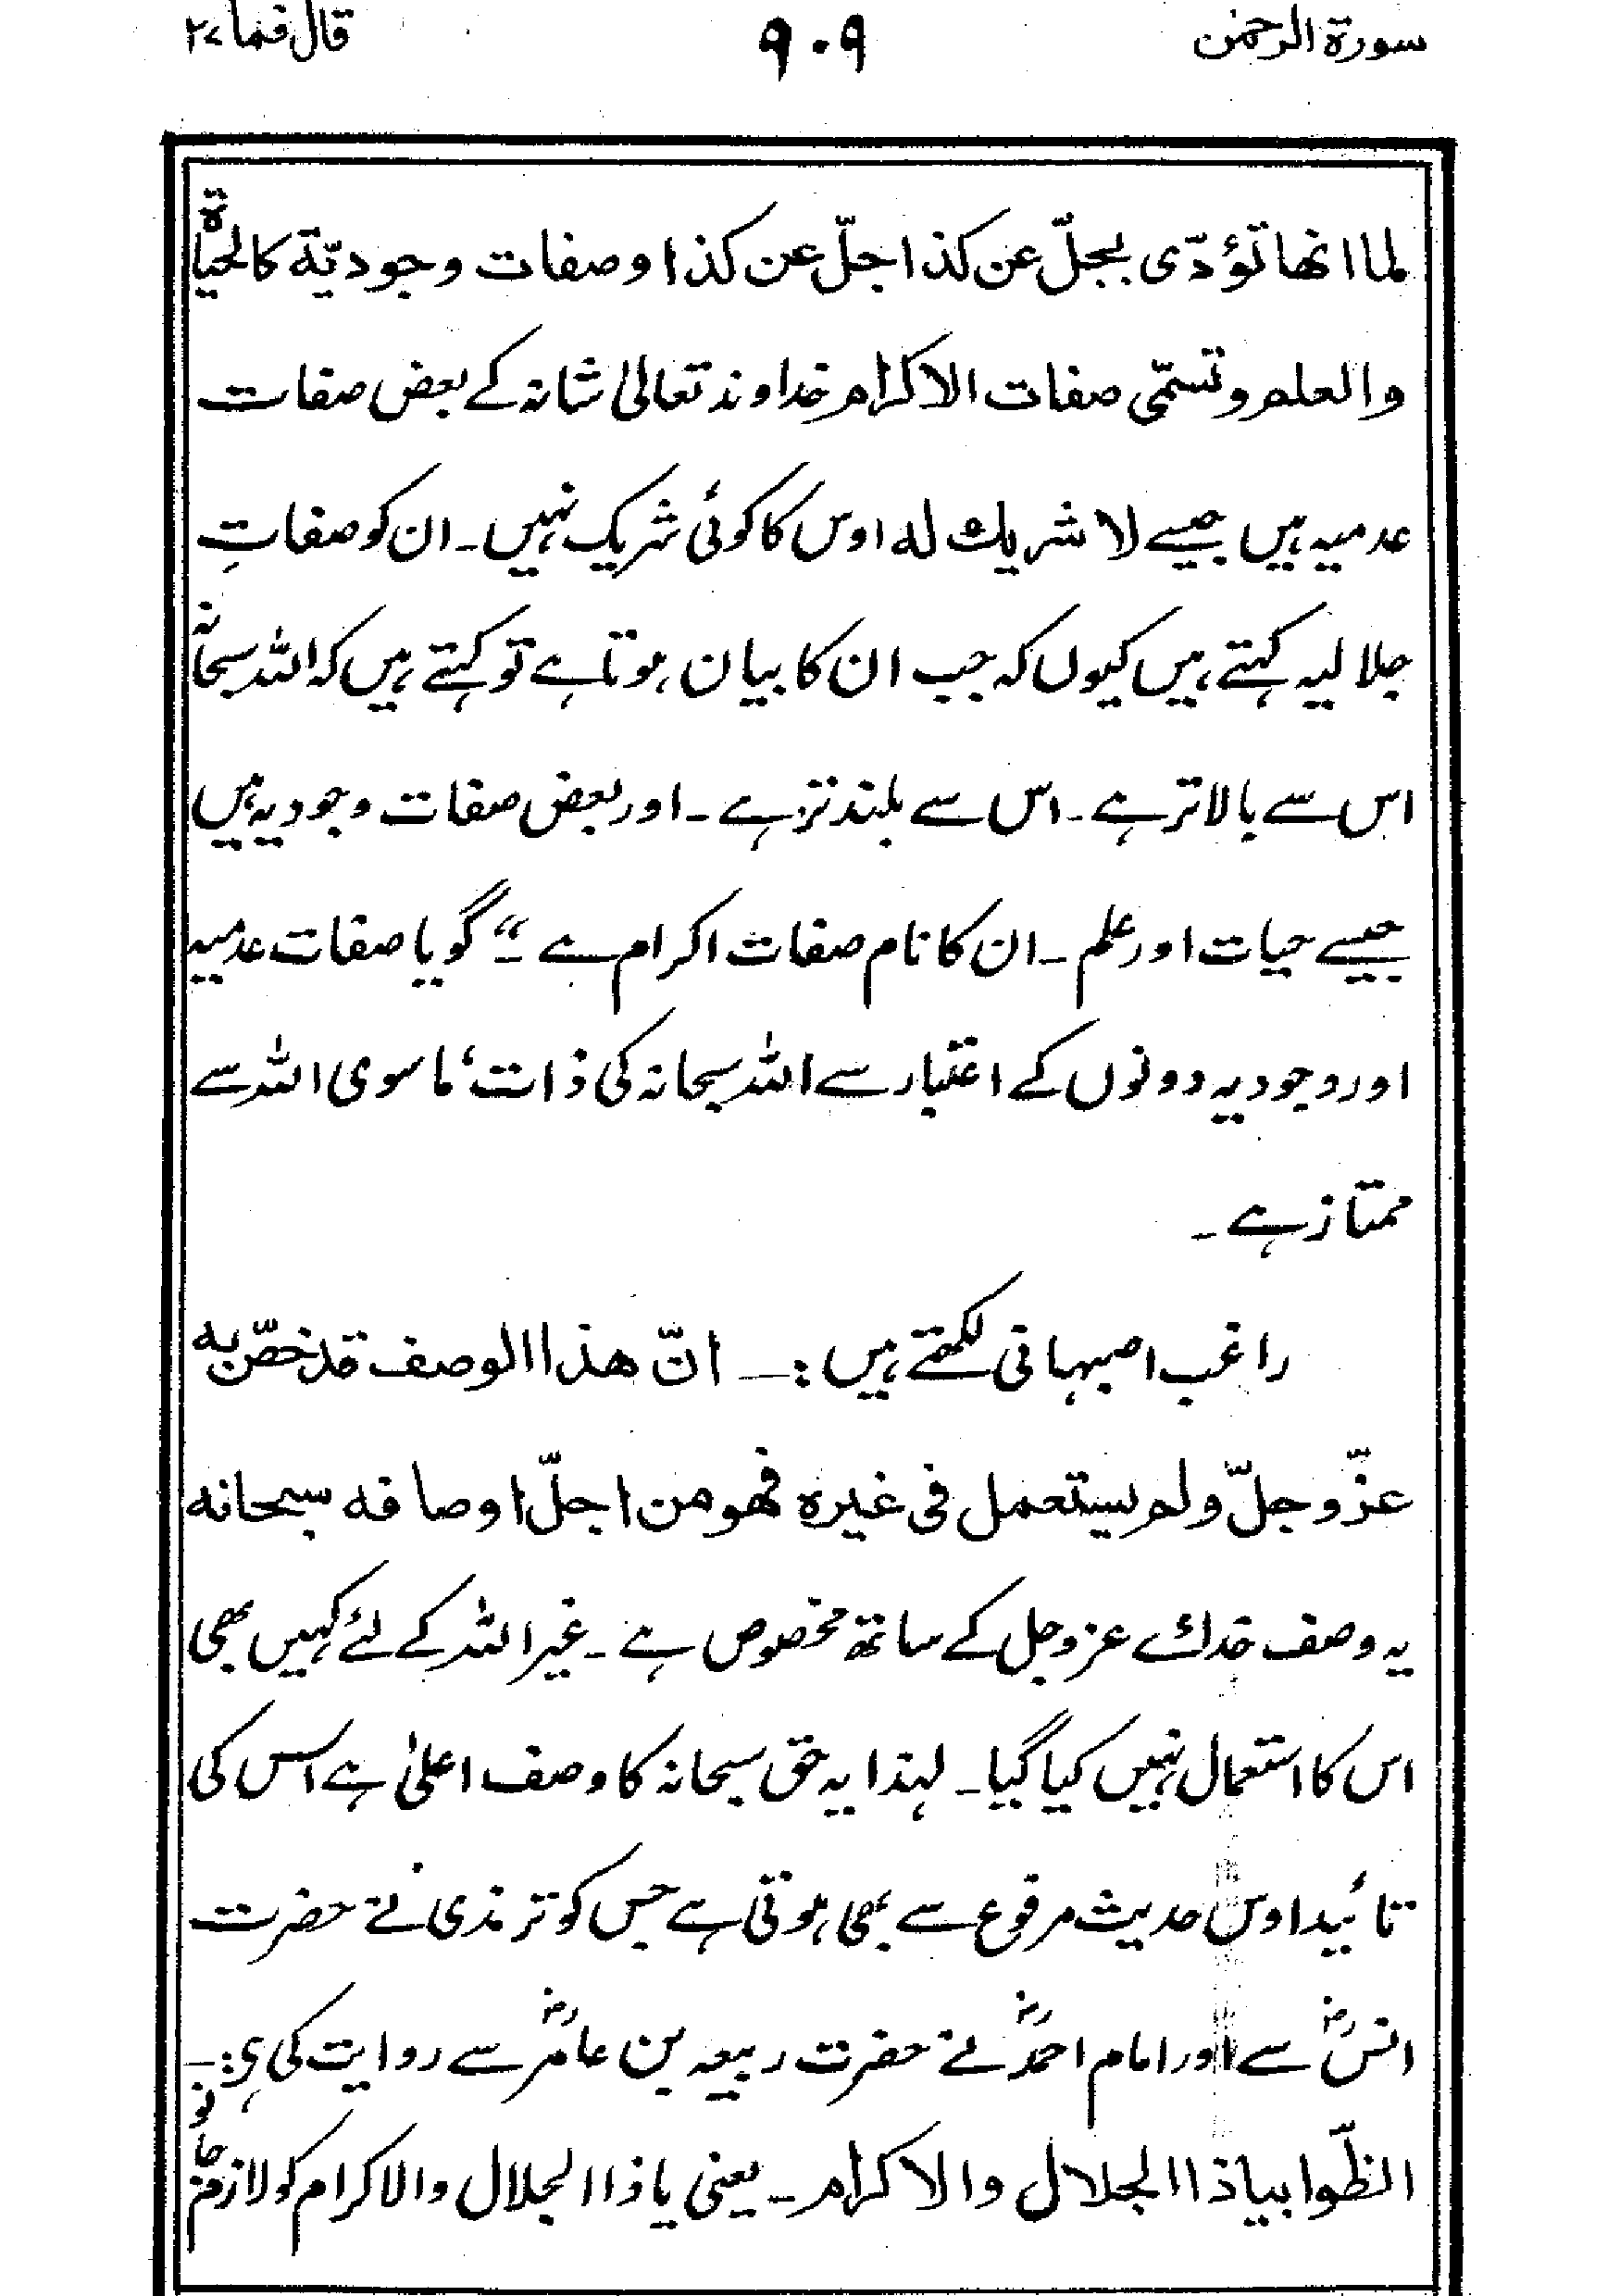 سورة الرحمٰن ۹۰۹ قال فما ۲۷
لما انها تؤدّی بجلّ عن کذا جلّ عن کذا وصفات وجودیّة کالحیاة
والعلم وتسمّی صفات الاکرام خداوند تعالیٰ شانہ کے بعض صفات
عدمیہ ہیں جیسے لا شریك له اوس کا کوئی شریک نہیں۔ ان کو صفاتِ
جلالیہ کہتے ہیں کیوں کہ جب ان کا بیان ہوتا ہے تو کہتے ہیں کہ اللہ سبحانہ
اس سے بالاتر ہے۔ اس سے بلند تر ہے۔ اور بعض صفات وجودیہ ہیں
جیسے حیات اور علم۔ ان کا نام صفات اکرام ہے۔“ گویا صفات عدمیہ
اور وجودیہ دونوں کے اعتبار سے اللہ سبحانہ کی ذات، ماسوی اللہ سے
ممتاز ہے۔
راغب اصبہانی لکھتے ہیں:۔ انّ هذا الوصف قد خصّ به
عزّ وجلّ ولم یستعمل فی غیره فهو من اجلّ اوصافه سبحانه
یہ وصف خدائے عز وجل کے ساتھ مخصوص ہے۔ غیر اللہ کے لئے کہیں بھی
اس کا استعمال نہیں کیا گیا۔ لہذا یہ حق سبحانہ کا وصف اعلیٰ ہے اس کی
تائید اوس حدیث مرفوع سے بھی ہوتی ہے جس کو ترمذی نے حضرت
انسؓ سے اور امام احمدؒ نے حضرت ربیعہ بن عامرؓ سے روایت کی ہے:۔
الظّوا بیاذا الجلال والاکرام۔ یعنی یا ذا الجلال والاکرام کو لازم جانو